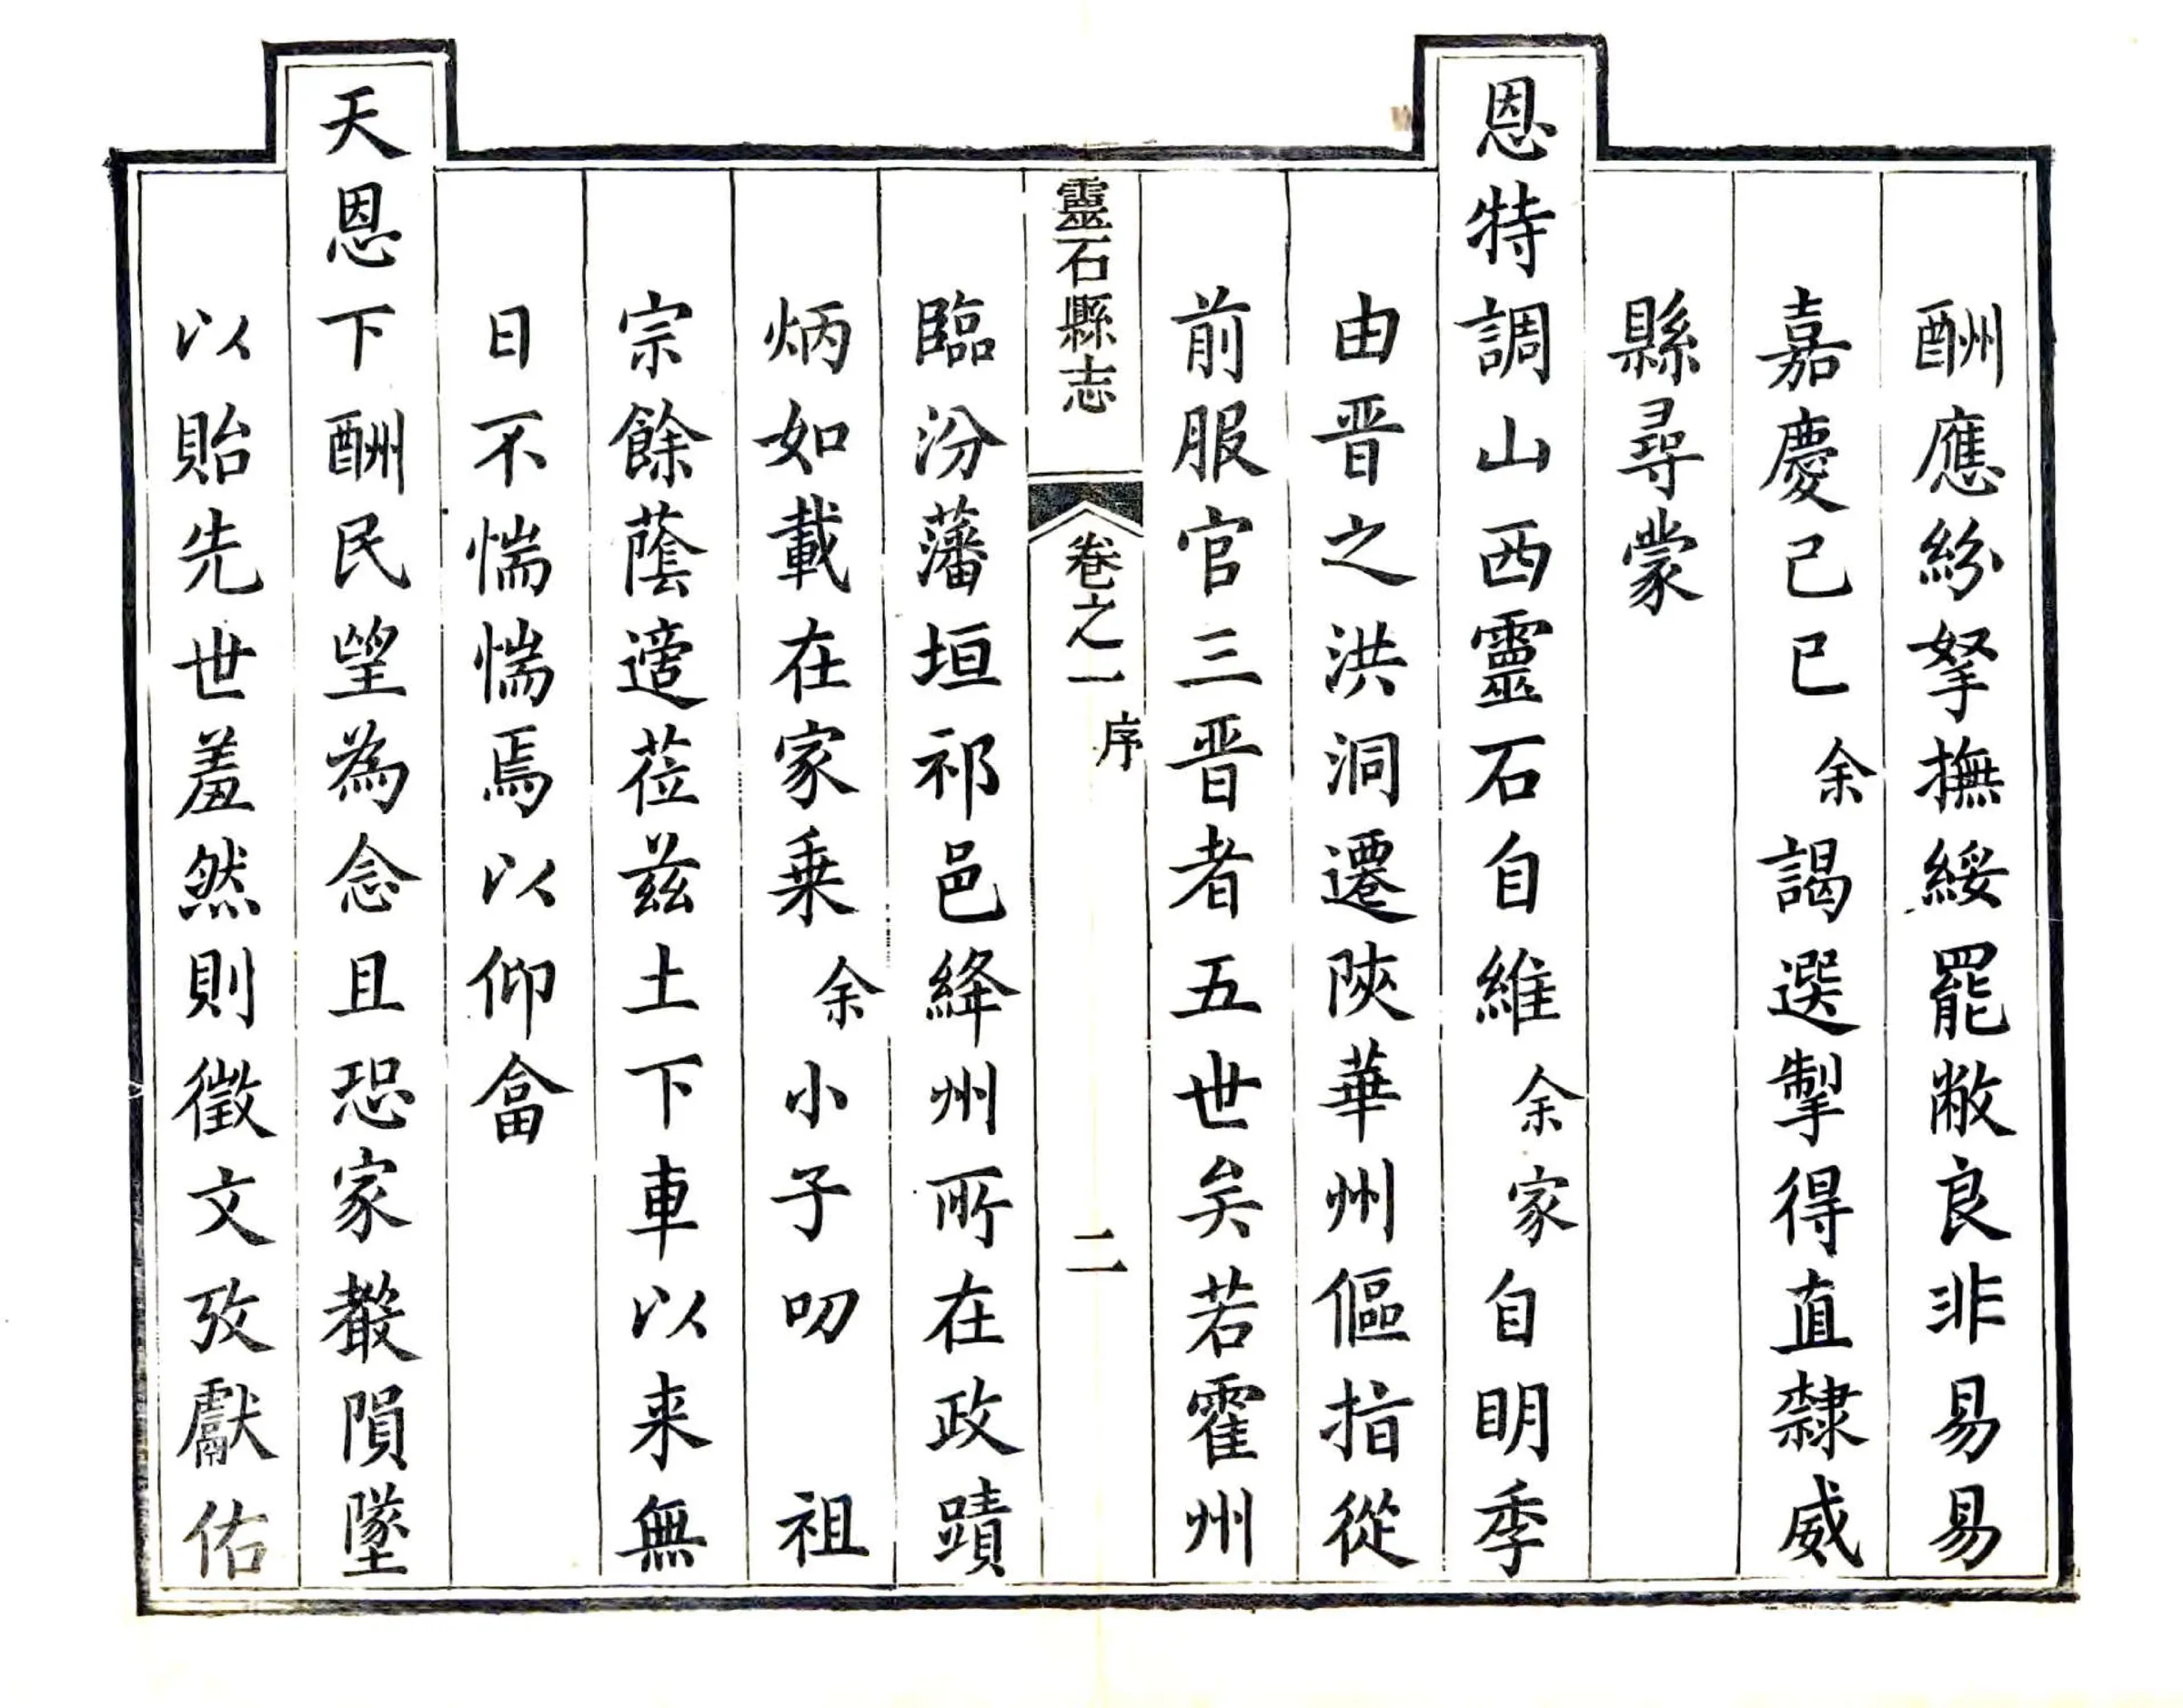 酬應紛拏撫綏罷敝良非易易
嘉慶己巳余謁選掣得直隸威
縣尋蒙
恩特調山西靈石自維余家自明季
由晋之洪洞遷陝華州傴指從
前服官三晋者五世矣若霍州
靈石縣志 卷之一 序 二
臨汾藩垣祁邑絳州所在政蹟
炳如載在家乗余小子叨 祖
宗餘蔭適莅兹土下車以来無
日不惴惴焉以仰畣
天恩下酬民望為念且恐家聲隕墜
以貽先世羞然則徵文攷獻佑